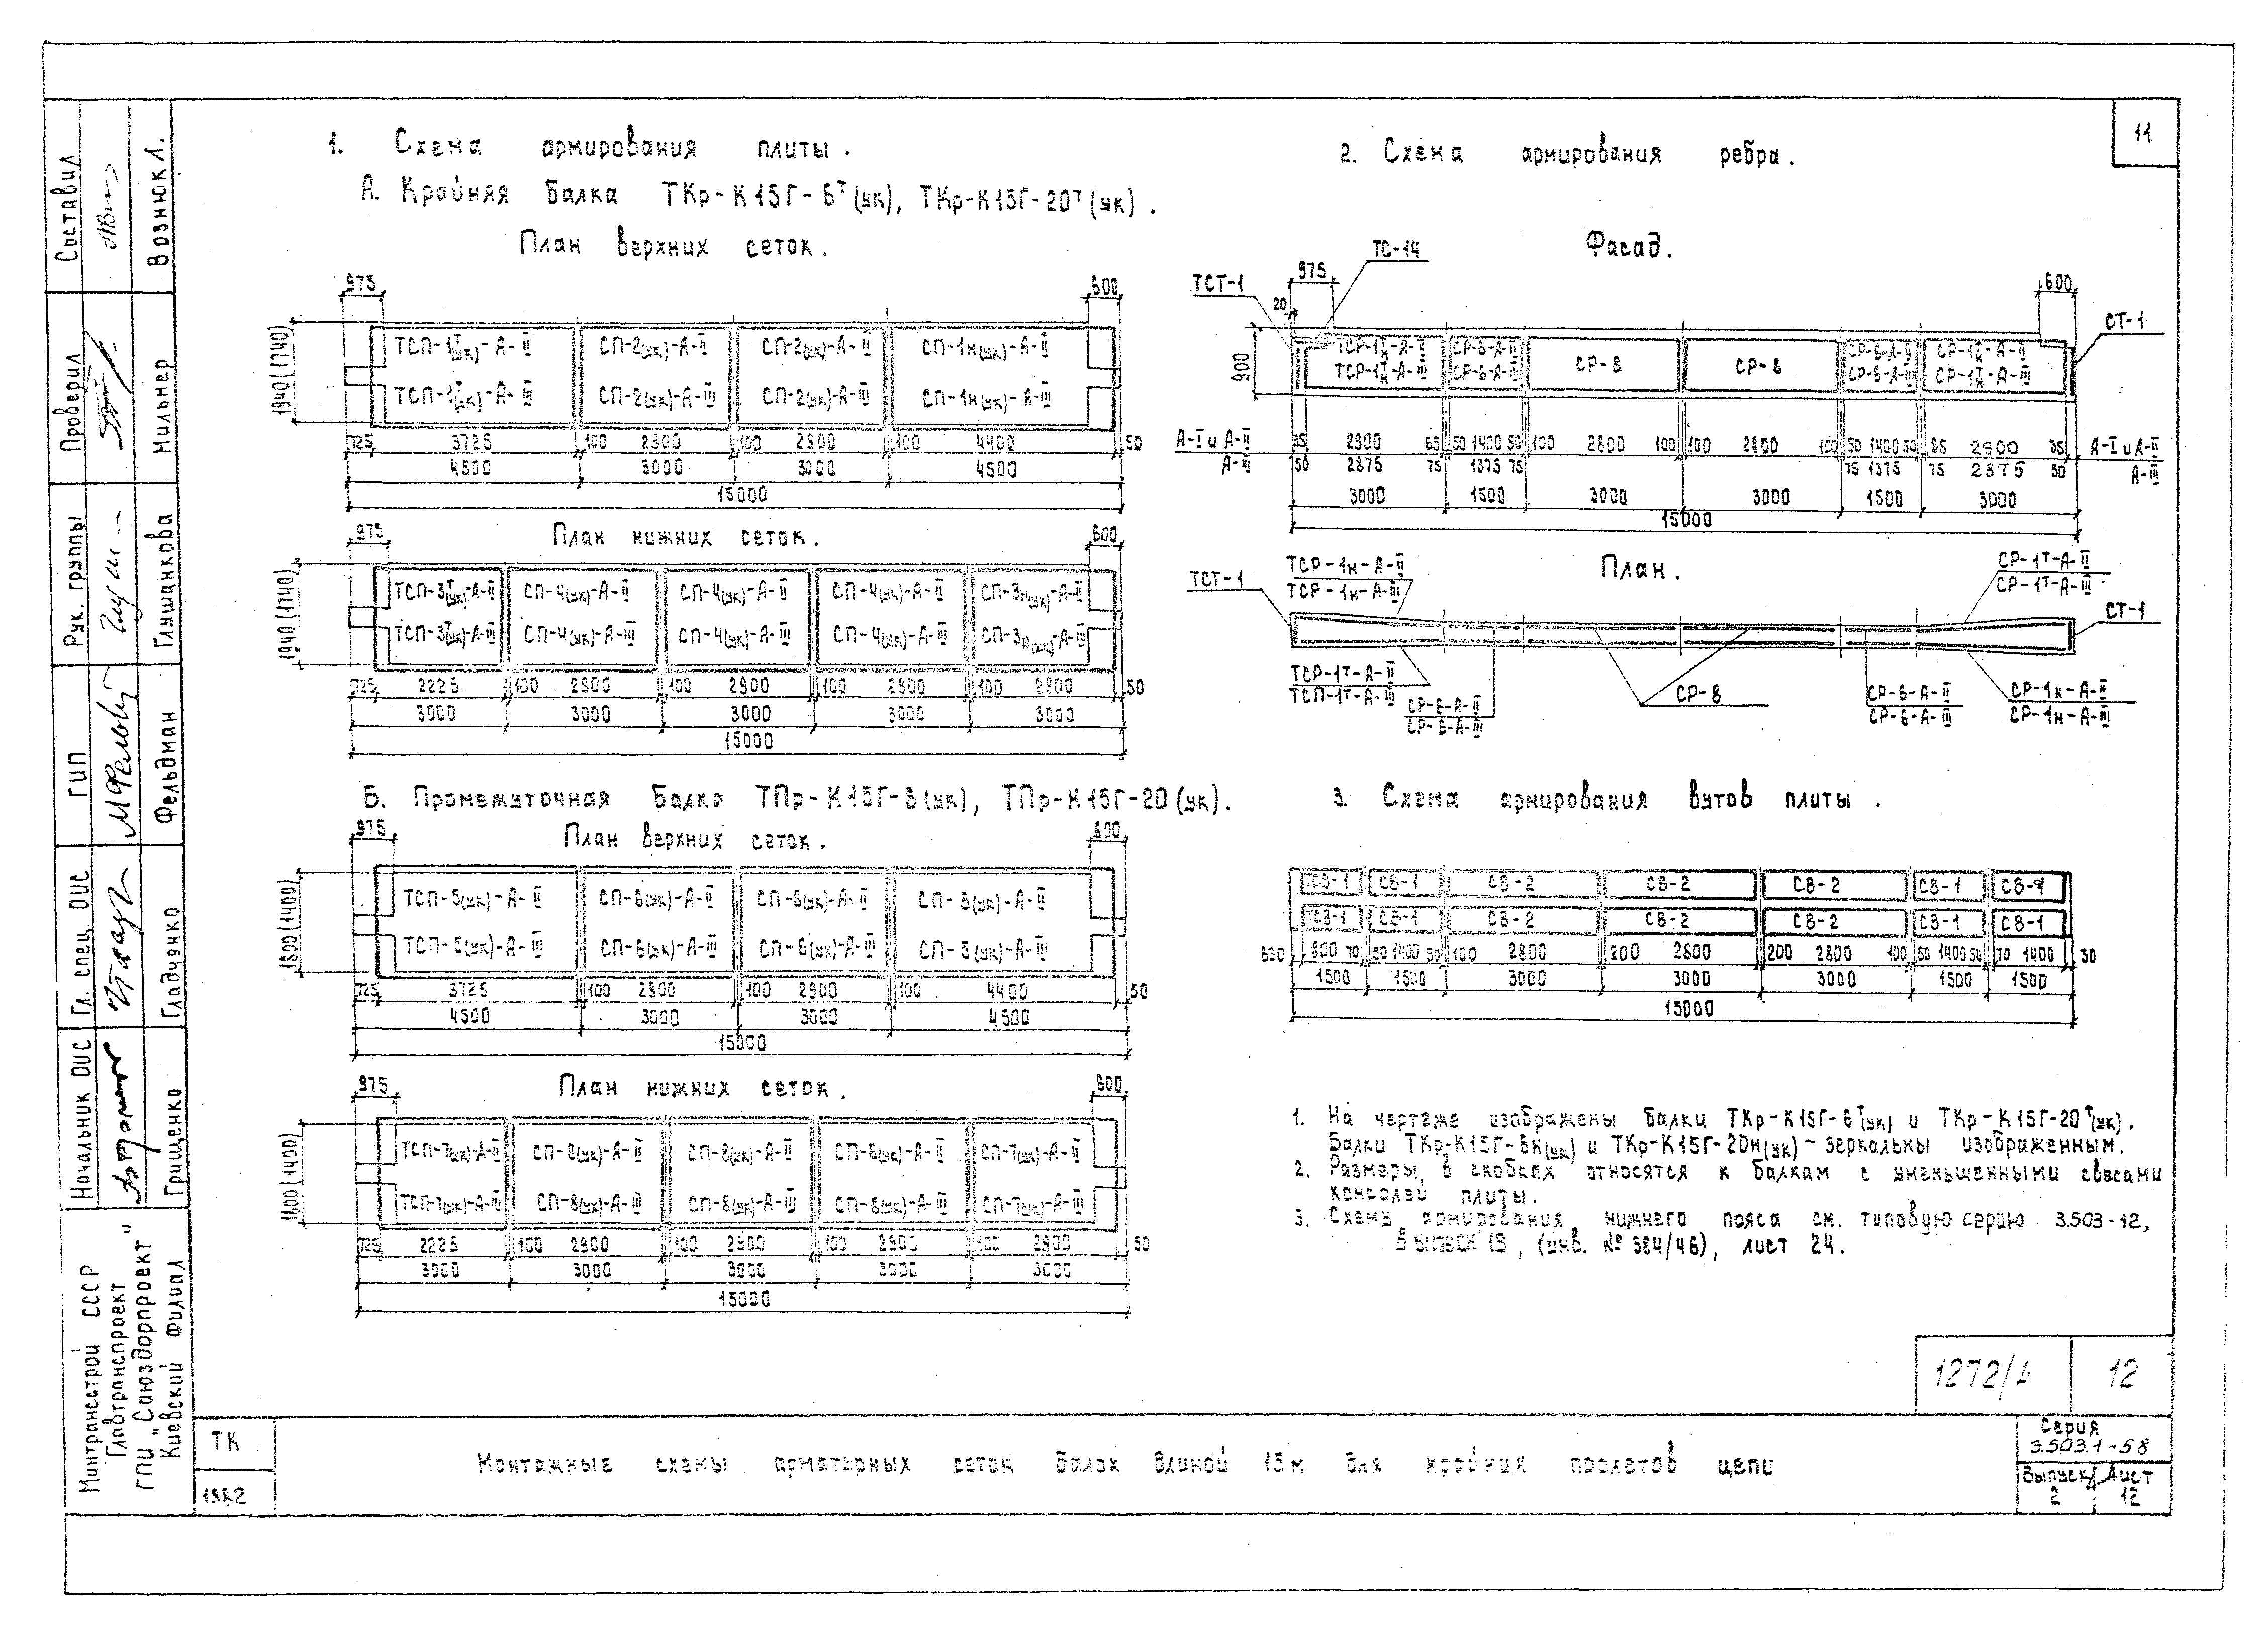 11
1. Схема армирования плиты.
А. Крайняя балка ТКр-К15Г-8т(ук), ТКр-К15Г-20т(ук).
План верхних сеток.
975 600
1940(1740)
ТСП-1т(ук)-А-II СП-2(ук)-А-II СП-2(ук)-А-II СП-1н(ук)-А-II
ТСП-1т(ук)-А-III СП-2(ук)-А-III СП-2(ук)-А-III СП-1н(ук)-А-III
725 3725 100 2900 100 2900 100 4400 50
4500 3000 3000 4500
15000
План нижних сеток.
975 600
1940(1740)
ТСП-3т(ук)-А-II СП-4(ук)-А-II СП-4(ук)-А-II СП-4(ук)-А-II СП-3н(ук)-А-II
ТСП-3т(ук)-А-III СП-4(ук)-А-III СП-4(ук)-А-III СП-4(ук)-А-III СП-3н(ук)-А-III
725 2225 100 2900 100 2900 100 2900 100 2900 50
3000 3000 3000 3000 3000
15000
Б. Промежуточная балка ТПр-К15Г-8(ук), ТПр-К15Г-20(ук).
План верхних сеток.
975 600
1800(1400)
ТСП-5(ук)-А-II СП-6(ук)-А-II СП-6(ук)-А-II СП-5(ук)-А-II
ТСП-5(ук)-А-III СП-6(ук)-А-III СП-6(ук)-А-III СП-5(ук)-А-III
725 3725 100 2900 100 2900 100 4400 50
4500 3000 3000 4500
15000
План нижних сеток.
975 600
1800(1400)
ТСП-7(ук)-А-II СП-8(ук)-А-II СП-8(ук)-А-II СП-8(ук)-А-II СП-7(ук)-А-II
ТСП-7(ук)-А-III СП-8(ук)-А-III СП-8(ук)-А-III СП-8(ук)-А-III СП-7(ук)-А-III
725 2225 100 2900 100 2900 100 2900 100 2900 50
3000 3000 3000 3000 3000
15000
2. Схема армирования ребра.
Фасад.
ТСТ-1 975 ТС-14 600 СТ-1
20
900
ТСР-1тн-А-II СР-6-А-II СР-8 СР-8 СР-6-А-II СР-1тн-А-II
ТСР-1тн-А-III СР-6-А-III СР-6-А-III СР-1тн-А-III
А-I и А-II 35 2900 65 50 1400 50 100 2800 100 100 2800 100 50 1400 50 65 2900 35 А-I и А-II
А-III 50 2875 75 1375 75 75 1375 75 2875 50 А-III
3000 1500 3000 3000 1500 3000
15000
План.
ТСТ-1 ТСР-1н-А-II СР-1т-А-II
ТСР-1н-А-III СР-1т-А-III
СТ-1
ТСР-1т-А-II СР-6-А-II СР-8 СР-6-А-II СР-1н-А-II
ТСП-1т-А-III СР-6-А-III СР-6-А-III СР-1н-А-III
3. Схема армирования вутов плиты.
ТСВ-1 СВ-1 СВ-2 СВ-2 СВ-2 СВ-1 СВ-1
ТСВ-1 СВ-1 СВ-2 СВ-2 СВ-2 СВ-1 СВ-1
630 800 70 50 1400 50 100 2800 200 2800 200 2800 100 50 1400 50 70 1400 30
1500 1500 3000 3000 3000 1500 1500
15000
1. На чертеже изображены балки ТКр-К15Г-8т(ук) и ТКр-К15Г-20т(ук).
Балки ТКр-К15Г-8н(ук) и ТКр-К15Г-20н(ук) - зеркальны изображенным.
2. Размеры в скобках относятся к балкам с уменьшенными свесами
консолей плиты.
3. Схему армирования нижнего пояса см. типовую серию 3.503-12,
Выпуск 18, (инв. № 384/46), лист 24.
1272/4 12
Монтажные схемы арматурных сеток балок длиной 15м для крайних пролетов цепи
ТК
1982
Серия
3.503.1-58
Выпуск Лист
2 12
Составил Вознюк Л.
Проверил Мильнер
Рук. группы Глушанкова
ГИП Фельдман
Гл. спец. ОИС Гладченко
Начальник ОИС Грищенко
Минтрансстрой СССР
Главтранспроект
ГПИ "Союздорпроект"
Киевский филиал